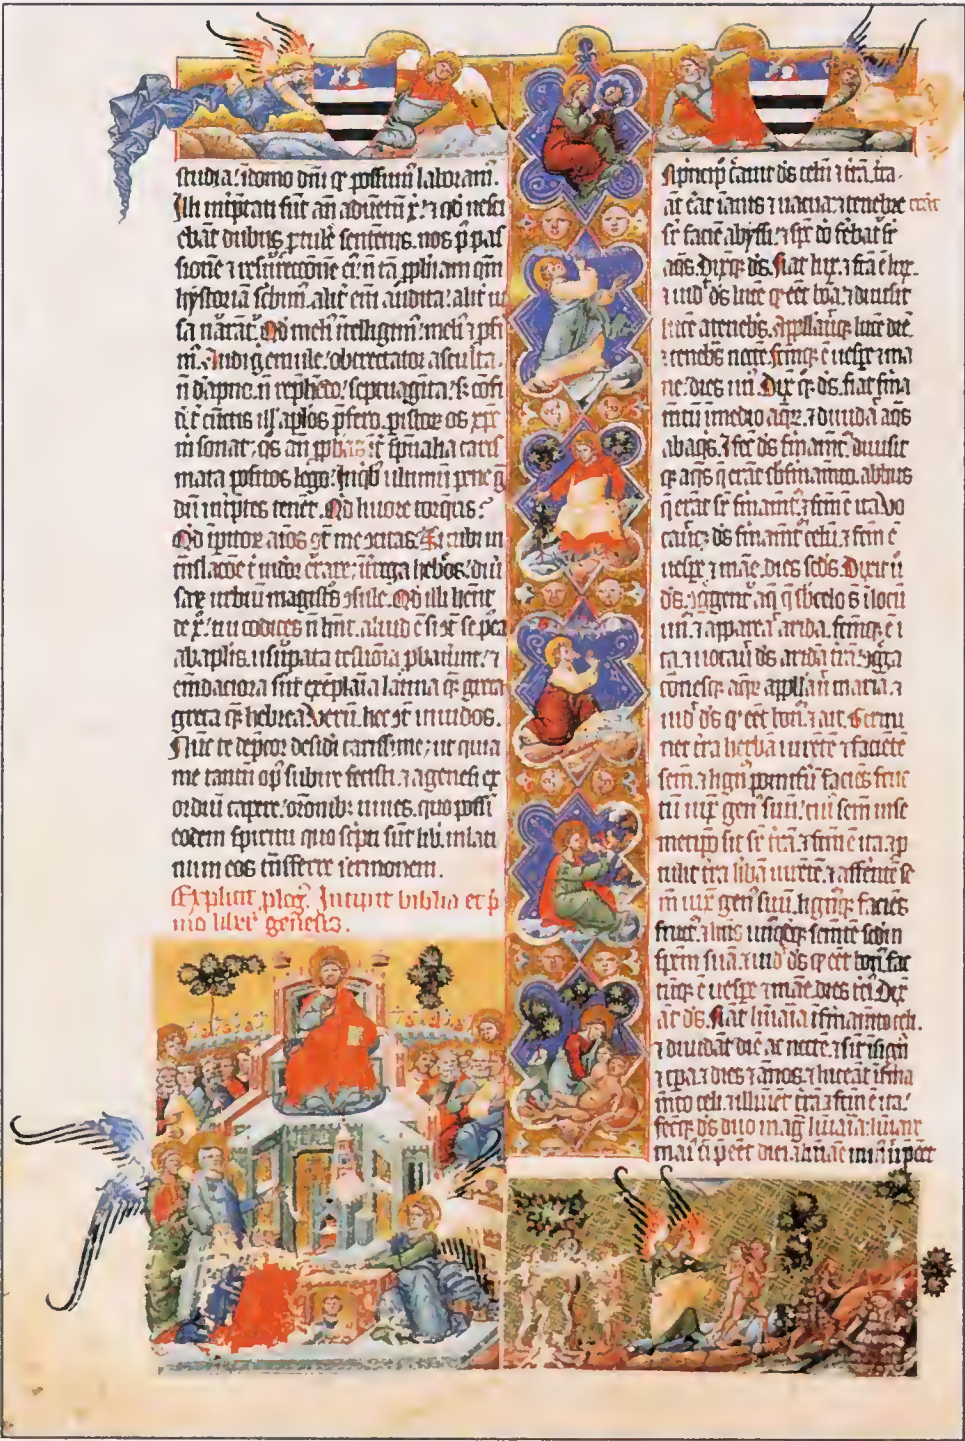 studia: i domo dñi q̃ possum' laboram'.
Illi int̃pretati sũt añ aduentũ x̃. ⁊ qd' nesci
ebãt dubiis ꝓtulẽ sentẽtiis. nos ꝑ pas
sionẽ ⁊ resurrectionẽ ei'. ñ tã ꝓphiam qm̃
hystoriã scbim'. alit̃ eni audita: alit̃ ui
sa narãt'. Qd' meli' itelligim': meli' ⁊ ꝓfi
m'. Audi ỹ emule: obtrectator asculta.
ñ dãpno. ñ rephẽdo: septuaginta. s; cõfi
dẽt̃ cũctis ill' aplõs p̃fero. ꝑ istor̃ os xp̃c
m̃ sonat: q̃s añ ꝓphãs it̃ spũalia caris
mata positos lego: in qib' ultimũ pene g̃
dũ int̃p̃tes tenẽt. Qd' liuore torq̃ris:
Qd' ip̃itor̃ aĩos ꝯt̃ me ꝯcitas. Si ubi in
trãslacõe t̃ uidor̃ errare: it̃roga hebr̃os: diu̾
sar̃ urbiũ magistros ꝯsule. Qd' illi hẽnt
de x̃: tui codices ñ hñt. aliud ẽ si ꝯt̃ se p'ea
ab aplis usurpata testiõia ꝓbauer̃t: ⁊
emdaciora sũt exẽplaria latina q̃ greca
greca q̃ hebrea. Verũ hec ꝯt̃ inuidos.
Nũc te dep̃cor desid̾i carissime: ut quia
me tantũ op' subire fecisti. ⁊ a genesi ex
ordiũ capere: or̃onib; iuues. quo possĩ
eodem spiritu quo sc̃pti sũt lib'. in lati
num eos trãsferre sermonem.
Explicit ꝓlog'. Incipit biblia et p̾
mo liber genesis.
In p̾ncip̃ creauit ds celũ ⁊ trã. t̃ra.
aũt erat inanis ⁊ uacua: ⁊ tenebre erãt
sr̃ faciẽ abyssi: ⁊ sp̃c dñi ferebat' sr̃
aq̃s. Dixitq; ds. Fiat lux. ⁊ fc̃a ẽ lux.
⁊ uid' ds lucẽ q̃ eẽt bõa: ⁊ diuisit
lucẽ a tenebris. Appellauitq; lucẽ diẽ:
⁊ tenebras noctẽ. Fcm̃q; ẽ uesper̃ ⁊ ma
ne: dies un'. Dix̃ q̃; ds. fiat firma
mẽtũ i medio aq̃r: ⁊ diuidat aq̃s
ab aq̃s. ⁊ fec̃ ds firmamt̃: diuisit
q; aq̃s q̃ erãt sb firmamẽto. ab hiis
q̃ erãt sr̃ firmamt̃: ⁊ fcm̃ ẽ ita. Vo
cauitq; ds firmamt̃ celũ: ⁊ fcm̃ ẽ
uesper̃ ⁊ mãe. dies sc̃ds. Dixit u̾
ds. ꝯgregent' aq̃ q̃ sb celo s̃ i locũ
unũ: ⁊ appareat arida. fcm̃q; ẽ i
ta. ⁊ uocauit ds aridã trã: ꝯgga
cõnesq; aq̃r appllauit maria. ⁊
uid' ds q̃ eẽt bon̾. ⁊ ait. Germi
net t̃ra herbã uirẽtẽ ⁊ faciẽtẽ
semẽ: ⁊ lignũ pomiferũ faciẽs fruc
tũ iux̃ gen' suũ: cui' semẽ in se
metip̃o sit sr̃ t̃rã. ⁊ fcm̃ ẽ ita. ⁊ p̾
tulit t̃ra herbã uirẽtẽ: ⁊ afferẽtẽ se
mẽ iux̃ gen' suũ. lignũq; faciẽs
fructũ. ⁊ hñs unũqdq; semẽtẽ scdm̃
spem̃ suã. ⁊ uid' ds q̃ eẽt bon̾. fac
tũq; ẽ uesper̃ ⁊ mãe. dies t̃ci'. Dix̃
aũt ds. Fiãt luĩaria i firmamẽto celi.
⁊ diuidãt diẽ ac noctẽ: ⁊ sĩt i sigñ
⁊ tp̃a: ⁊ dies ⁊ ãnos: ⁊ luceãt i firma
mẽto celi: ⁊ illumĩet t̃rã. ⁊ fcm̃ ẽ ita:
fecitq; ds duo mag̃ luĩaria: luĩare
mai' ut p̃eẽt diei: ⁊ luĩare min' ut p̃eẽt